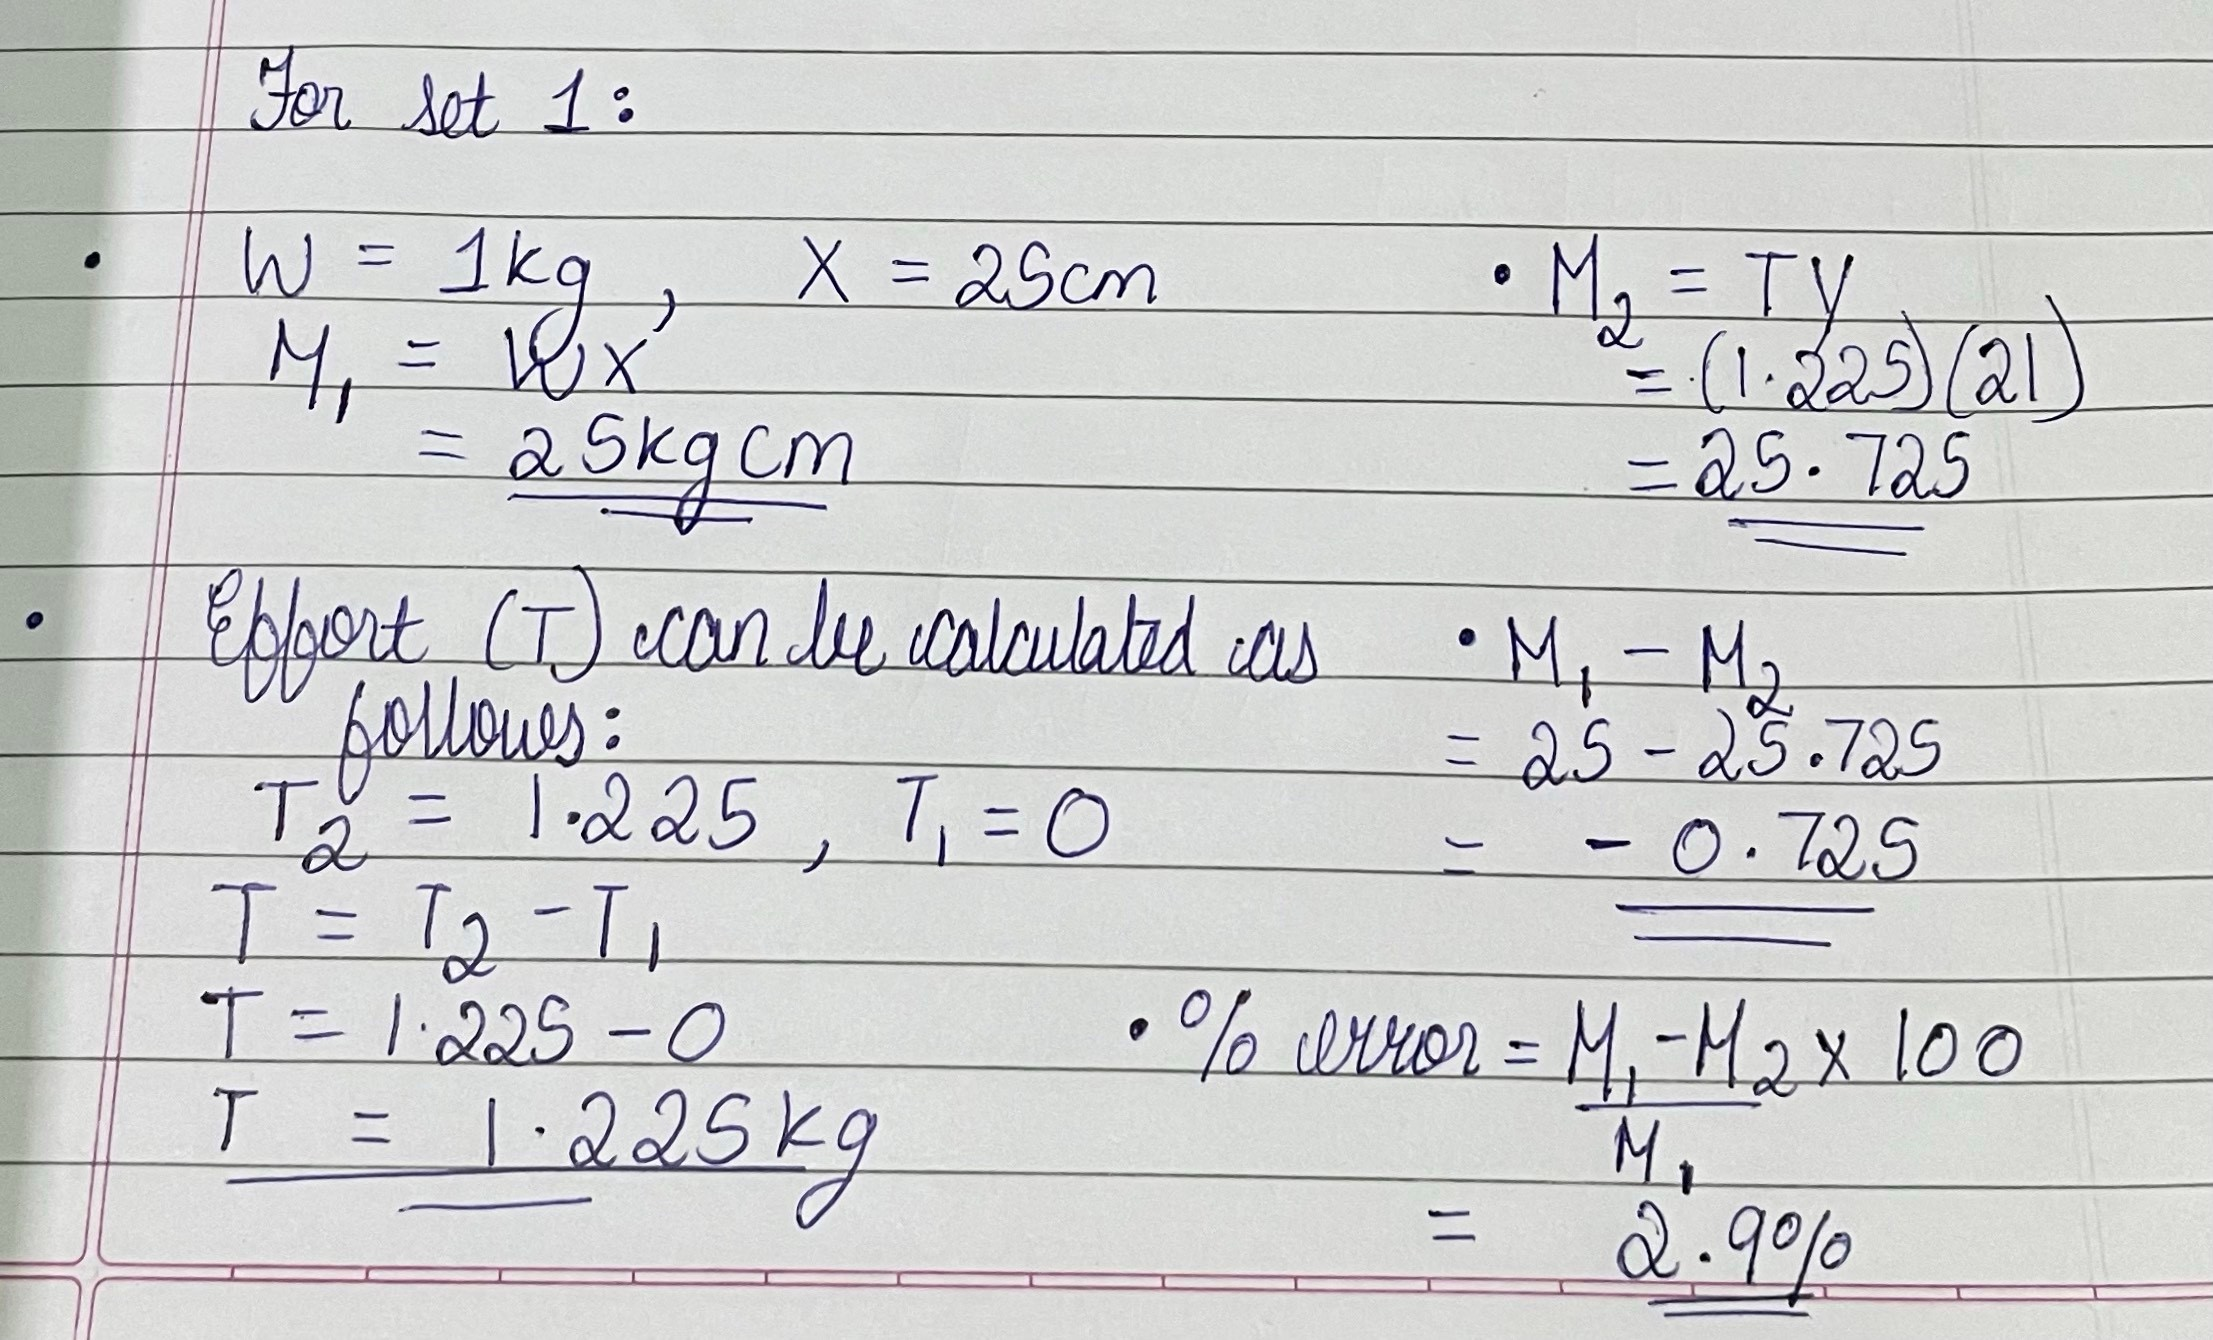 For set 1:
• W = 1kg, X = 25cm
M₁ = WX
= 25kg cm
• Effort (T) can be calculated as
follows:
T₂ = 1.225, T₁ = 0
T = T₂ - T₁
T = 1.225 - 0
T = 1.225kg
• M₂ = TY
= (1.225)(21)
= 25.725
• M₁ - M₂
= 25 - 25.725
= - 0.725
• % error = M₁ - M₂ x 100
M₁
= 2.9%